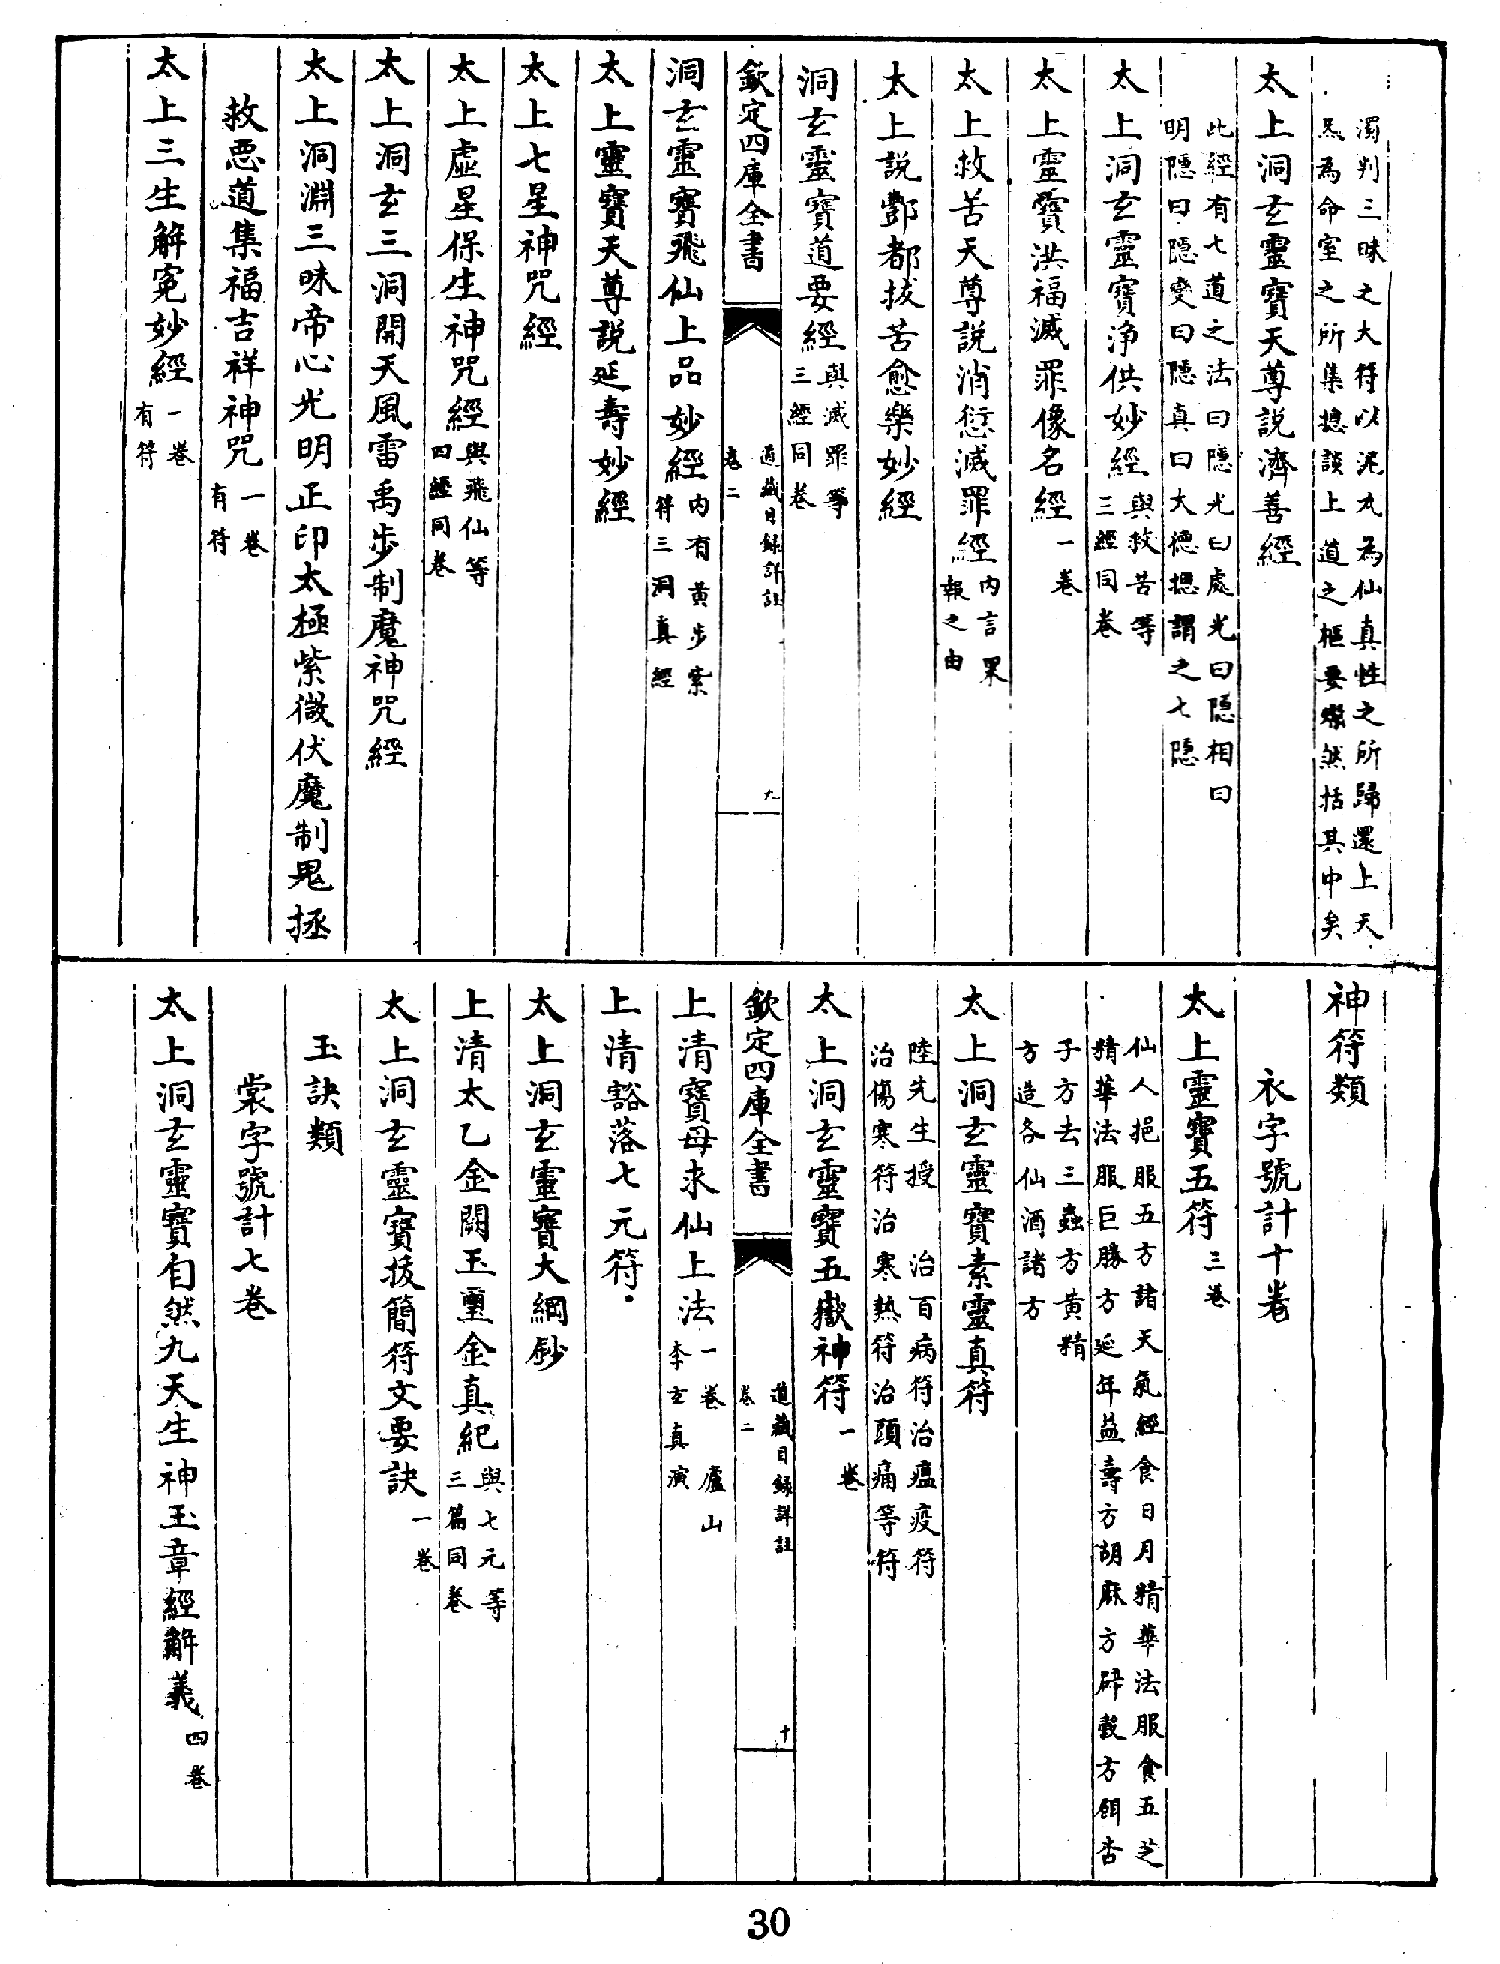 濁判三昧之大符以泥丸為仙真性之所歸還上天
炁為命室之所集揔談上道之樞要燦然括其中矣
太上洞玄靈寶天尊說濟善經
此經有七道之法曰隱光曰處光曰隱相曰
明隱曰隱變曰隱真曰大德揔謂之七隱
太上洞玄靈寶淨供妙經與救苦等
三經同卷
太上靈寶洪福滅罪像名經一卷
太上救苦天尊說消愆滅罪經內言果
報之由
太上說酆都拔苦愈樂妙經
洞玄靈寶道要經與滅罪等
三經同卷
欽定四庫全書
道藏目錄詳註
卷二
九
洞玄靈寶飛仙上品妙經內有黃步案
符三洞真經
太上靈寶天尊說延壽妙經
太上七星神咒經
太上虛星保生神咒經與飛仙等
四經同卷
太上洞玄三洞開天風雷禹步制魔神咒經
太上洞淵三昧帝心光明正印太極紫微伏魔制鬼拯
救惡道集福吉祥神咒一卷
有符
太上三生解冤妙經一卷
有符
神符類
衣字號計十卷
太上靈寶五符三卷
仙人挹服五方諸天氣經食日月精華法服食五芝
精華法服巨勝方延年益壽方胡麻方辟穀方餌杏
子方去三蟲方黃精
方造各仙酒諸方
太上洞玄靈寶素靈真符
陸先生授 治百病符治瘟疫符
治傷寒符治寒熱符治頭痛等符
太上洞玄靈寶五嶽神符一卷
欽定四庫全書
道藏目錄詳註
卷二
十
上清寶母求仙上法一卷 廬山
李玄真演
上清豁落七元符
太上洞玄靈寶大綱鈔
上清太乙金闕玉璽金真紀與七元等
三篇同卷
太上洞玄靈寶投簡符文要訣一卷
玉訣類
裳字號計七卷
太上洞玄靈寶自然九天生神玉章經解義四卷
30